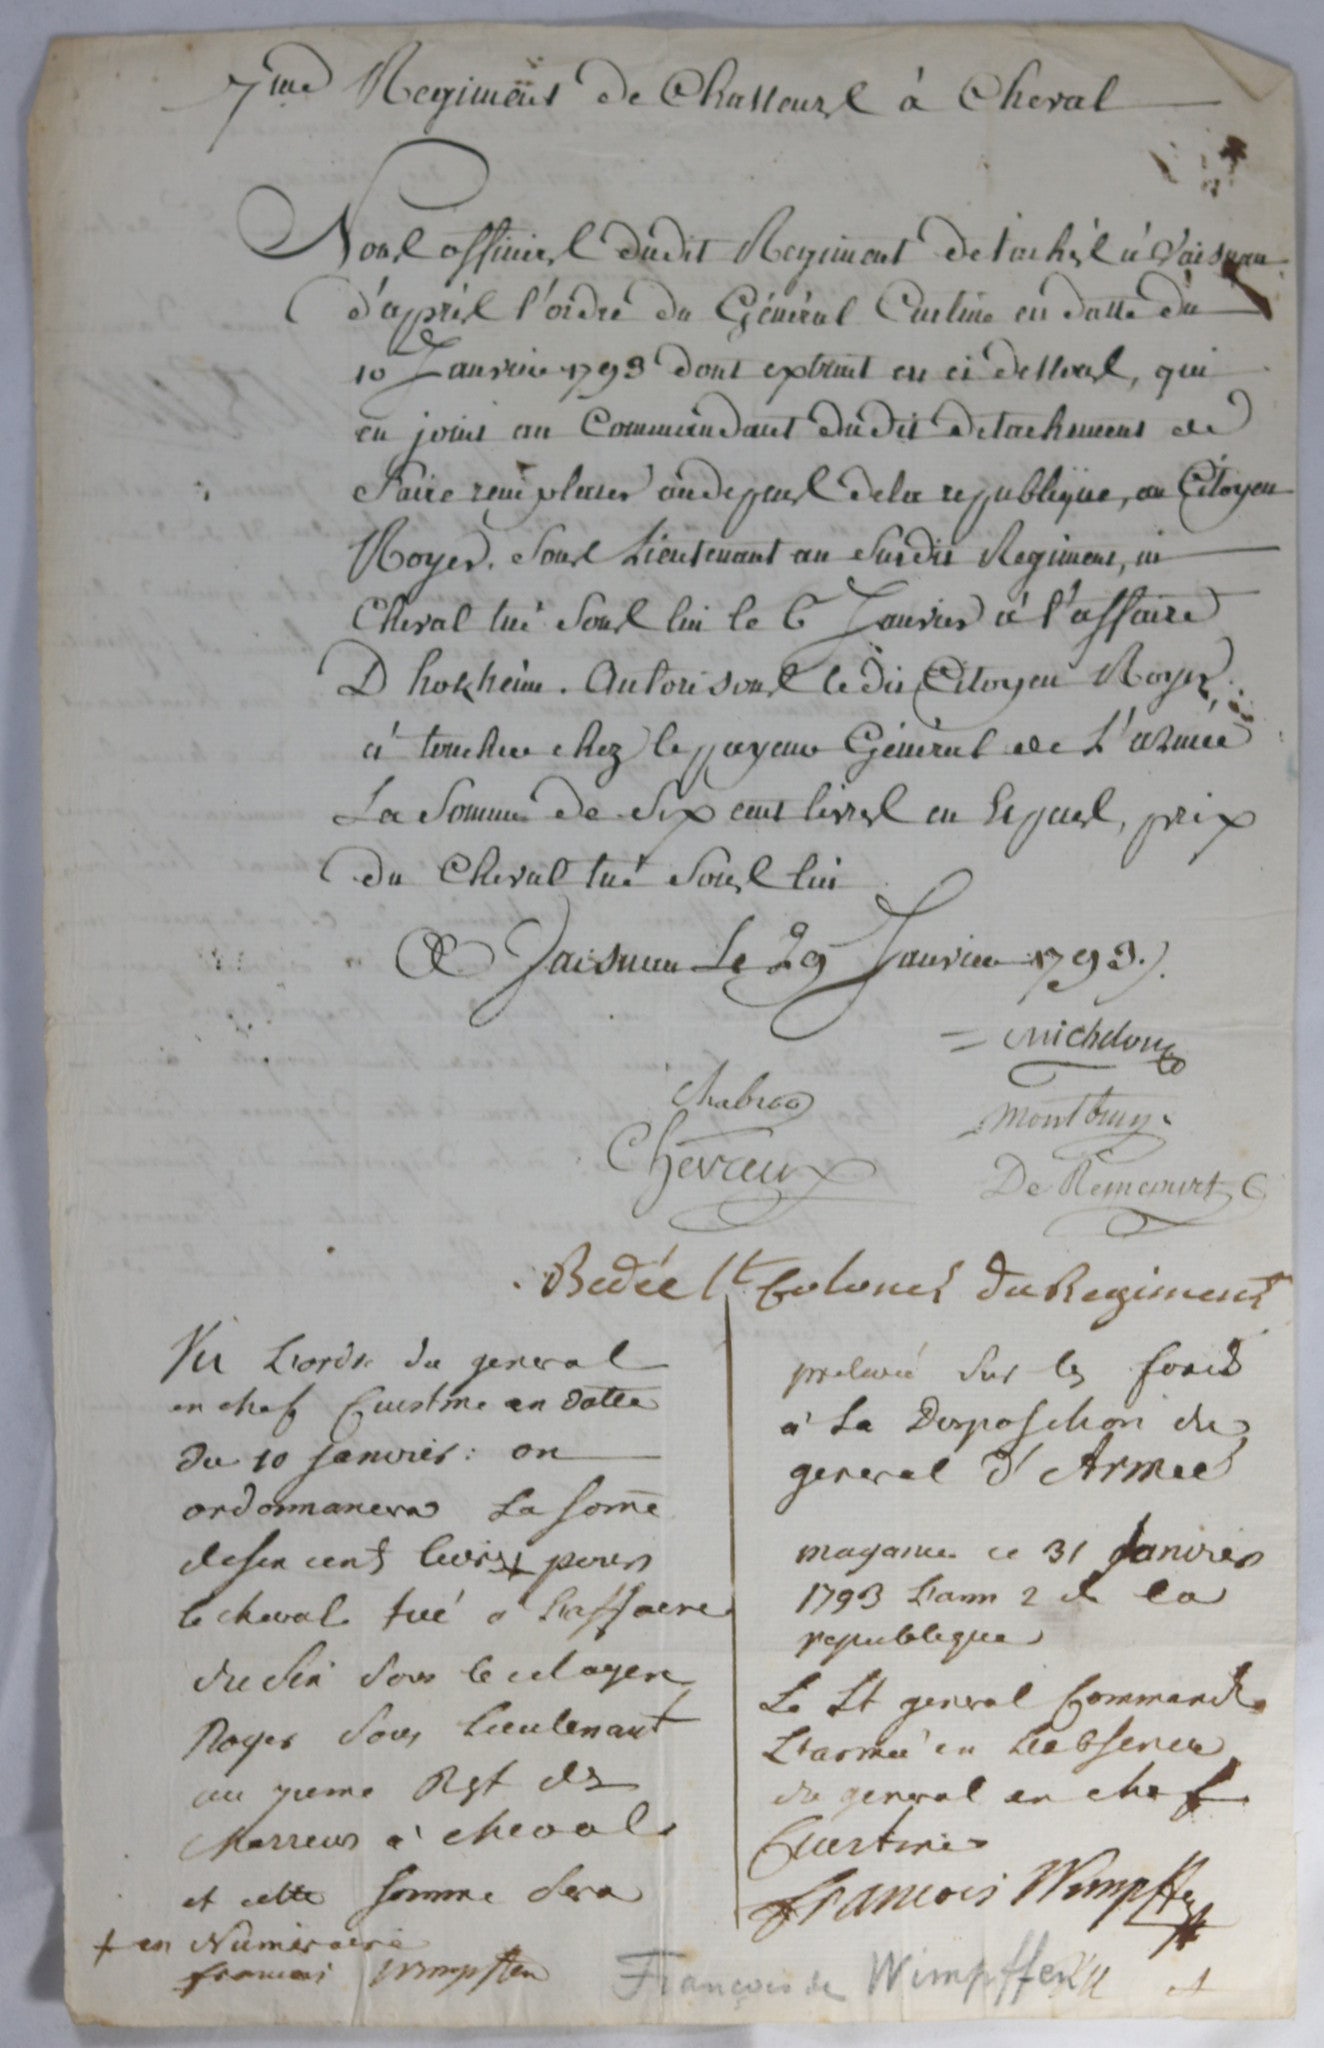 7me Regiment de Chasseurs à Cheval
Nous officiers dudit Regiment detachés à Vaisnau
d'après l'ordre du Général Custine en datte du
10 Janvier 1793 dont extrait en ci dessus, qui
en joint au Commandant dudit detachement de
faire remplacer au depens de la republique, au Citoyen
Royer. Sous Lieutenant au susdit Regiment, un
Cheval tué sous lui le 6 Janvier à l'affaire
D hokheim. Autorisons ledit Citoyen Royer,
à toucher chez le payeur Général de L'armée
La Somme de Six cent livres en Especes, prix
du Cheval tué sous lui
A Vaisnau Le 29 Janvier 1793.
Michelon
Chabrog
Montbrun
Chevreux
De Remcourt
Bedée Lt Colonel du Regiment
Vu L'ordre du general
en chef Custine en datte
du 10 janvier: on
ordonnancera La Somme
de six cent livres + pour
le cheval tué a L'affaire
du six sous le citoyen
Royer sous lieutenant
au 7ieme Rgt de
chasseurs à cheval
et cette somme sera
+ en Numéraire
francois Wimpffen
prelevé sur les fonds
à La Disposition du
general d'Armée
mayance ce 31 Janvier
1793 L'ann 2 de la
republique
Le Lt general Commandt
L'armée en L'absence
du general en chef
Custine
Francois Wimpffen
François de Wimpffen